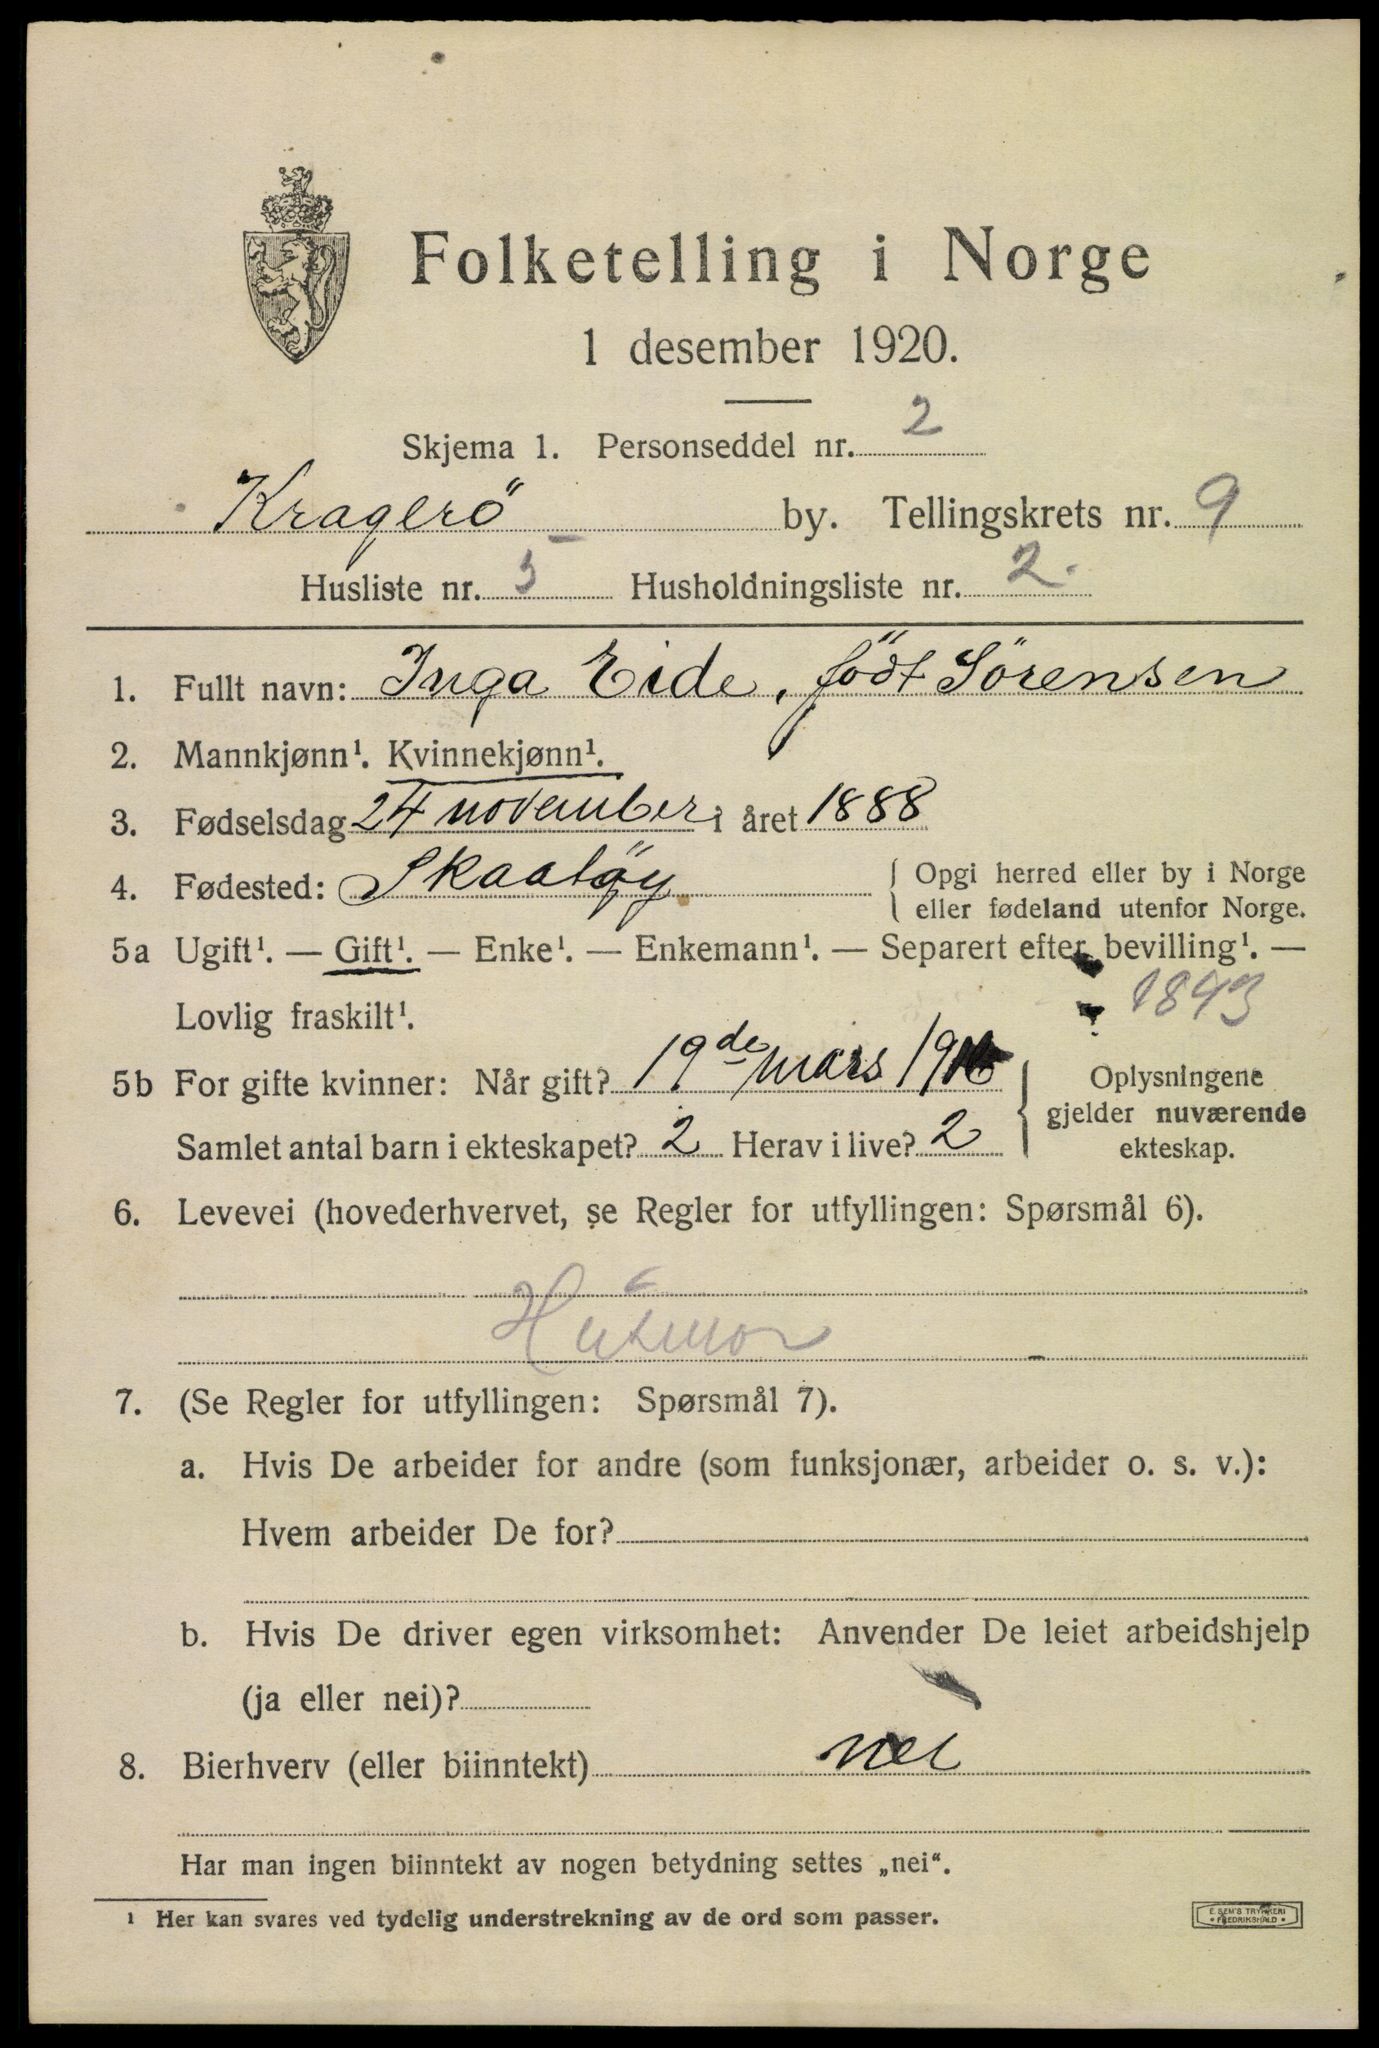 Folketelling i Norge
1 desember 1920.
Skjema 1. Personseddel nr. 2
Kragerö by. Tellingskrets nr. 9
Husliste nr. 5 Husholdningsliste nr. 2.
1. Fullt navn: Inga Eide, född Sörensen
2. Mannkjønn¹. Kvinnekjønn¹.
3. Fødselsdag 24 november i året 1888
4. Fødested: Skaatöy { Opgi herred eller by i Norge
eller fødeland utenfor Norge.
5a Ugift¹. — Gift¹. — Enke¹. — Enkemann¹. — Separert efter bevilling¹. —
Lovlig fraskilt¹. 1843
5b For gifte kvinner: Når gift? 19de mars
Samlet antal barn i ekteskapet? 2 Herav i live? 2
Oplysningene
gjelder nuværende
ekteskap.
6. Levevei (hovederhvervet, se Regler for utfyllingen: Spørsmål 6).
Husmor
7. (Se Regler for utfyllingen: Spørsmål 7).
a. Hvis De arbeider for andre (som funksjonær, arbeider o. s. v.):
Hvem arbeider De for?
b. Hvis De driver egen virksomhet: Anvender De leiet arbeidshjelp
(ja eller nei)?
8. Bierhverv (eller biinntekt) nei
Har man ingen biinntekt av nogen betydning settes „nei“.
¹ Her kan svares ved tydelig understrekning av de ord som passer.
E. SEM'S TRYKKERI
• FREDRIKSHALD •